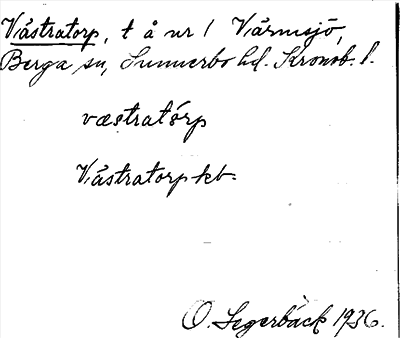 Västratorp, t å nr 1 Värmsjö,
Berga sn, Sunnerbo hd. Kronob. l.
væstratórp
Västratorp kb.
O. Segerbäck 1936.